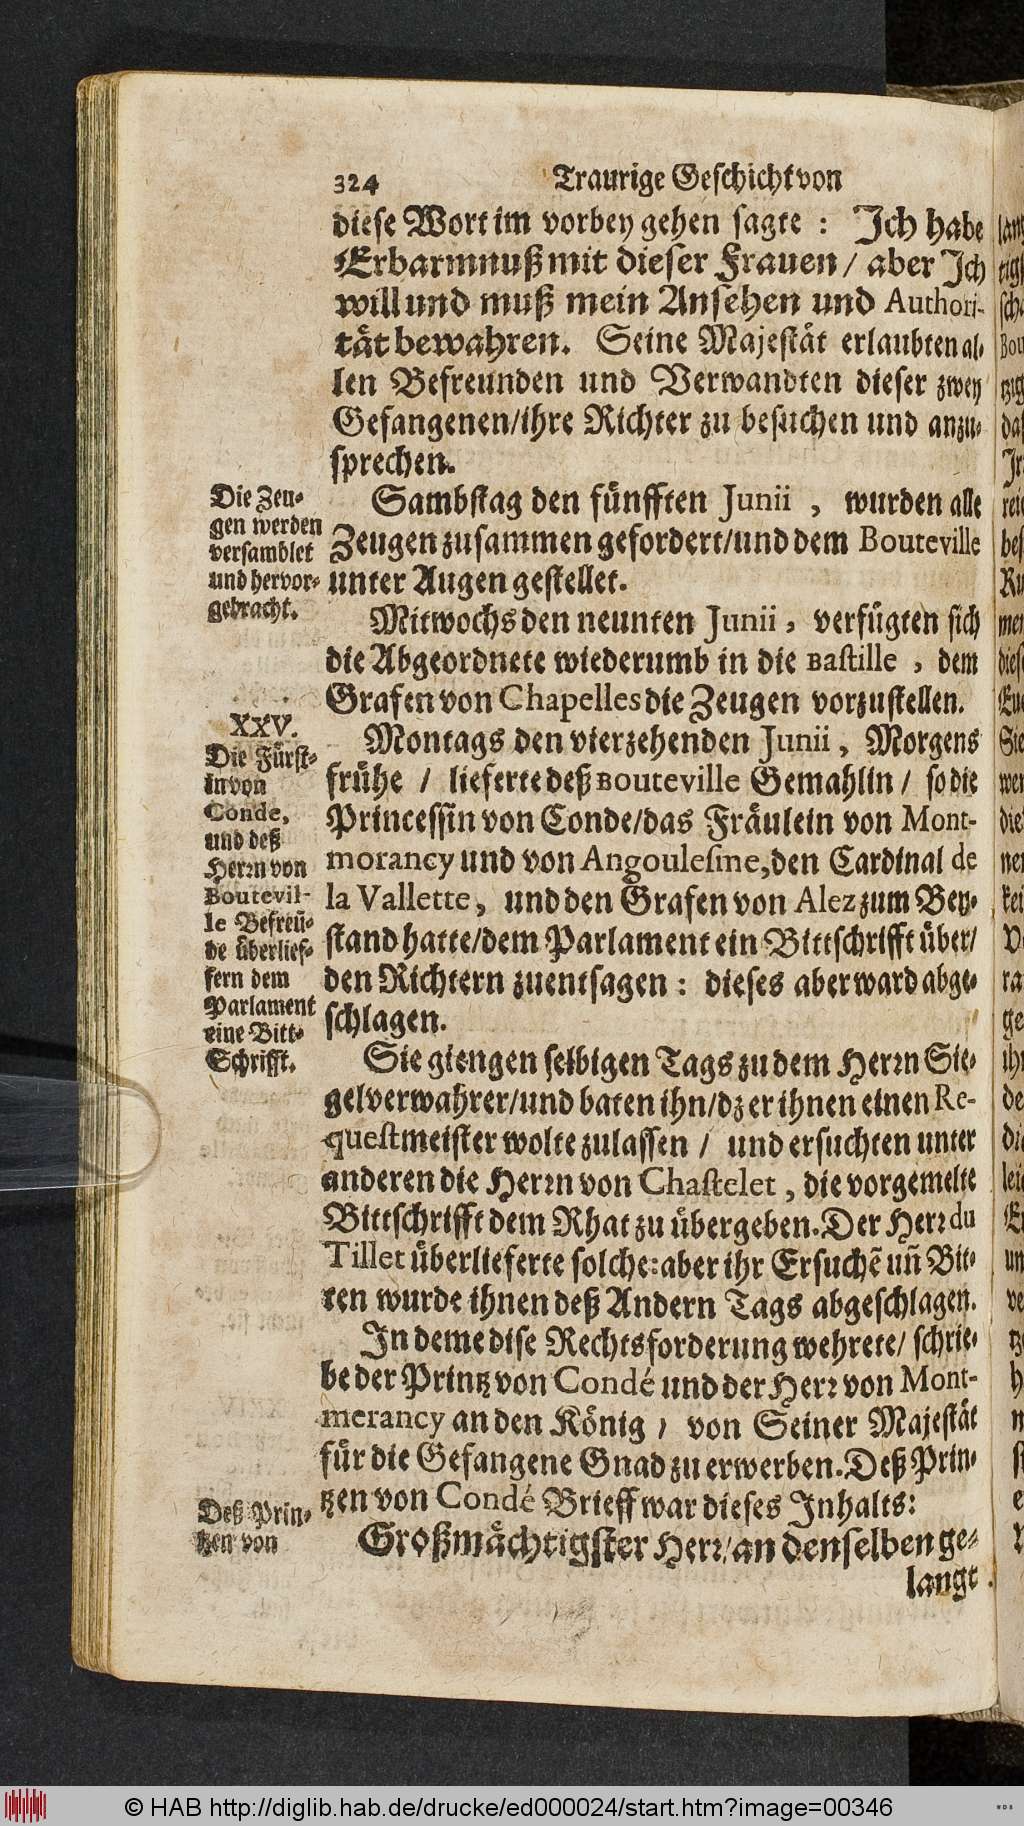 324 Traurige Geschicht von
diese Wort im vorbey gehen sagte : Ich habe
Erbarmnuß mit dieser Frauen / aber Ich
will und muß mein Ansehen und Authori-
tät bewahren. Seine Majestät erlaubten al-
len Befreunden und Verwandten dieser zwey
Gefangenen/ihre Richter zu besuchen und anzu-
sprechen.
Die Zeu-
gen werden
versamblet
und hervor-
gebracht.
Sambstag den fünfften Junii , wurden alle
Zeugen zusammen gefordert/und dem Bouteville
unter Augen gestellet.
Mitwochs den neunten Junii , verfügten sich
die Abgeordnete wiederumb in die Bastille , dem
Grafen von Chapelles die Zeugen vorzustellen.
XXV.
Die Fürst-
in von
Conde,
und deß
Herrn von
Boutevil-
le Befreü-
de überlief-
fern dem
Parlament
eine Bitt-
Schrifft.
Montags den vierzehenden Junii , Morgens
frühe / lieferte deß Bouteville Gemahlin / so die
Princessin von Conde/das Fräulein von Mont-
morancy und von Angoulesme, den Cardinal de
la Vallette, und den Grafen von Alez zum Bey-
stand hatte/dem Parlament ein Bittschrifft über/
den Richtern zuentsagen : dieses aber ward abge-
schlagen.
Sie giengen selbigen Tags zu dem Herrn Sie-
gelverwahrer/und baten ihn/dz er ihnen einen Re-
questmeister wolte zulassen / und ersuchten unter
anderen die Herrn von Chastelet , die vorgemelte
Bittschrifft dem Rhat zu übergeben. Der Herr du
Tillet überlieferte solche: aber ihr Ersuchẽ uñ Bit-
ten wurde ihnen deß Andern Tags abgeschlagen.
In deme dise Rechtsforderung wehrete/ schrie-
be der Printz von Condé und der Herr von Mont-
merancy an den König / von Seiner Majestät
für die Gefangene Gnad zu erwerben. Deß Prin-
tzen von Condé Brieff war dieses Inhalts:
Deß Prin-
tzen von
Großmächtigster Herr/an denselben ge-
langt
© HAB http://diglib.hab.de/drucke/ed000024/start.htm?image=00346